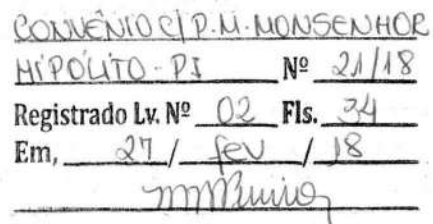 CONVÊNIO C/ P.M. MONSENHOR
HIPÓLITO - PI Nº 21/18
Registrado Lv. Nº 02 Fls. 34
Em, 27 / fev / 18